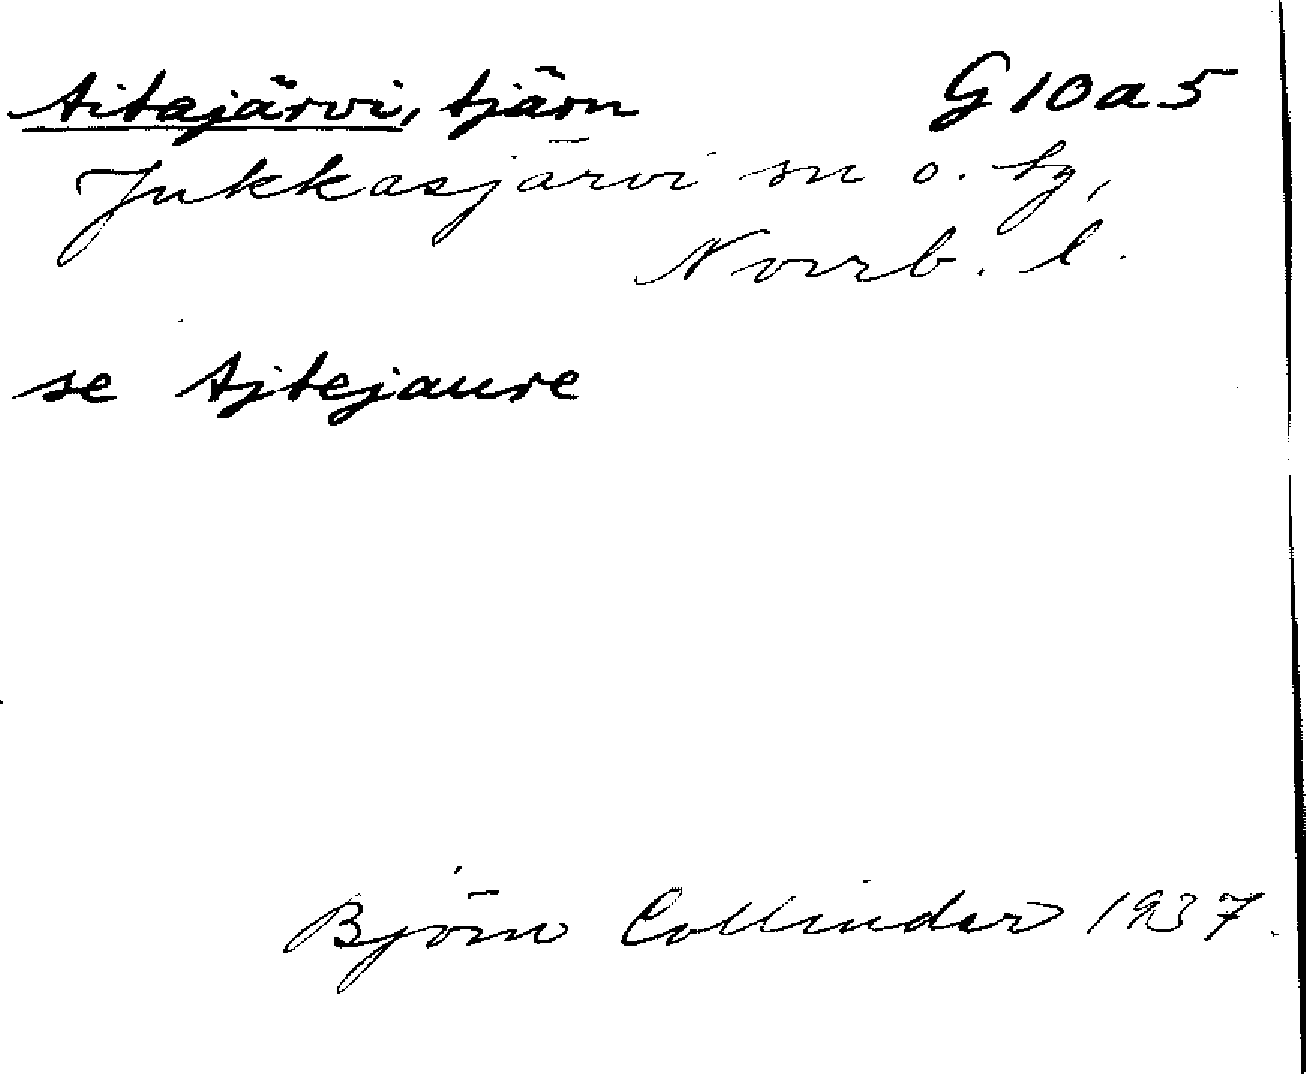 Aitajärvi, tjärn G10a5
Jukkasjärvi sn o. tg,
Norrb. l.
se Ajtejaure
Björn Collinder 1937.